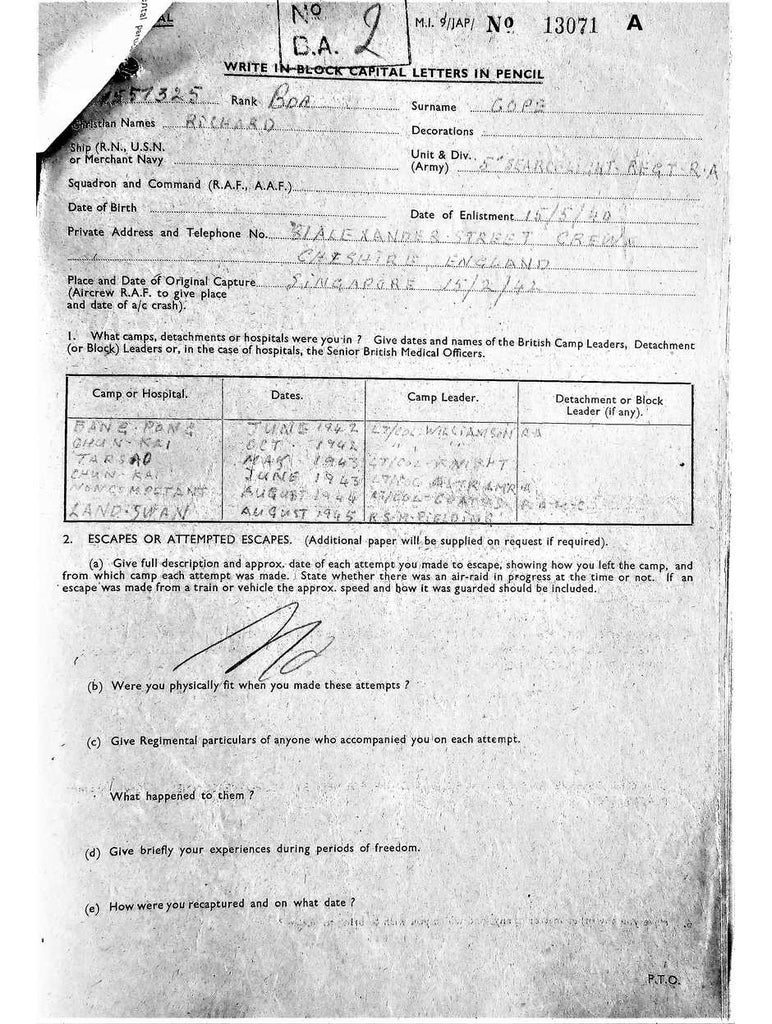 ental
AL
No
C.A. 2
M.I. 9/JAP/ No 13071 A
WRITE IN BLOCK CAPITAL LETTERS IN PENCIL
1557325 Rank BDR Surname GOPE
Christian Names RICHARD Decorations
Ship (R.N., U.S.N. or Merchant Navy
Unit & Div. (Army) 5" SEARCHLIGHT REGT-R.A
Squadron and Command (R.A.F., A.A.F.)
Date of Birth Date of Enlistment 15/5/40
Private Address and Telephone No. ALEXANDER STREET CREWE
CHESHIRE ENGLAND
Place and Date of Original Capture SINGAPORE 15/2/42
(Aircrew R.A.F. to give place
and date of a/c crash).
1. What camps, detachments or hospitals were you in ? Give dates and names of the British Camp Leaders, Detachment
(or Block) Leaders or, in the case of hospitals, the Senior British Medical Officers.
Camp or Hospital. Dates. Camp Leader. Detachment or Block Leader (if any).
BANG-PONG JUNE 1942 LT/COL-WILLIAMSON RA
CHUN-KAI OCT 1942 " "
TARSAO MAY 1943 LT/COL-KNIGHT
CHUN-KAI JUNE 1943 LT/COL
AUGUST 1944 LT/COL-COATES R.A.M.C
LAND-SWAN AUGUST 1945 R.S.M-FIELDING
2. ESCAPES OR ATTEMPTED ESCAPES. (Additional paper will be supplied on request if required).
(a) Give full description and approx. date of each attempt you made to escape, showing how you left the camp, and
from which camp each attempt was made. State whether there was an air-raid in progress at the time or not. If an
escape was made from a train or vehicle the approx. speed and how it was guarded should be included.
No
(b) Were you physically fit when you made these attempts ?
(c) Give Regimental particulars of anyone who accompanied you on each attempt.
What happened to them ?
(d) Give briefly your experiences during periods of freedom.
(e) How were you recaptured and on what date ?
P.T.O.